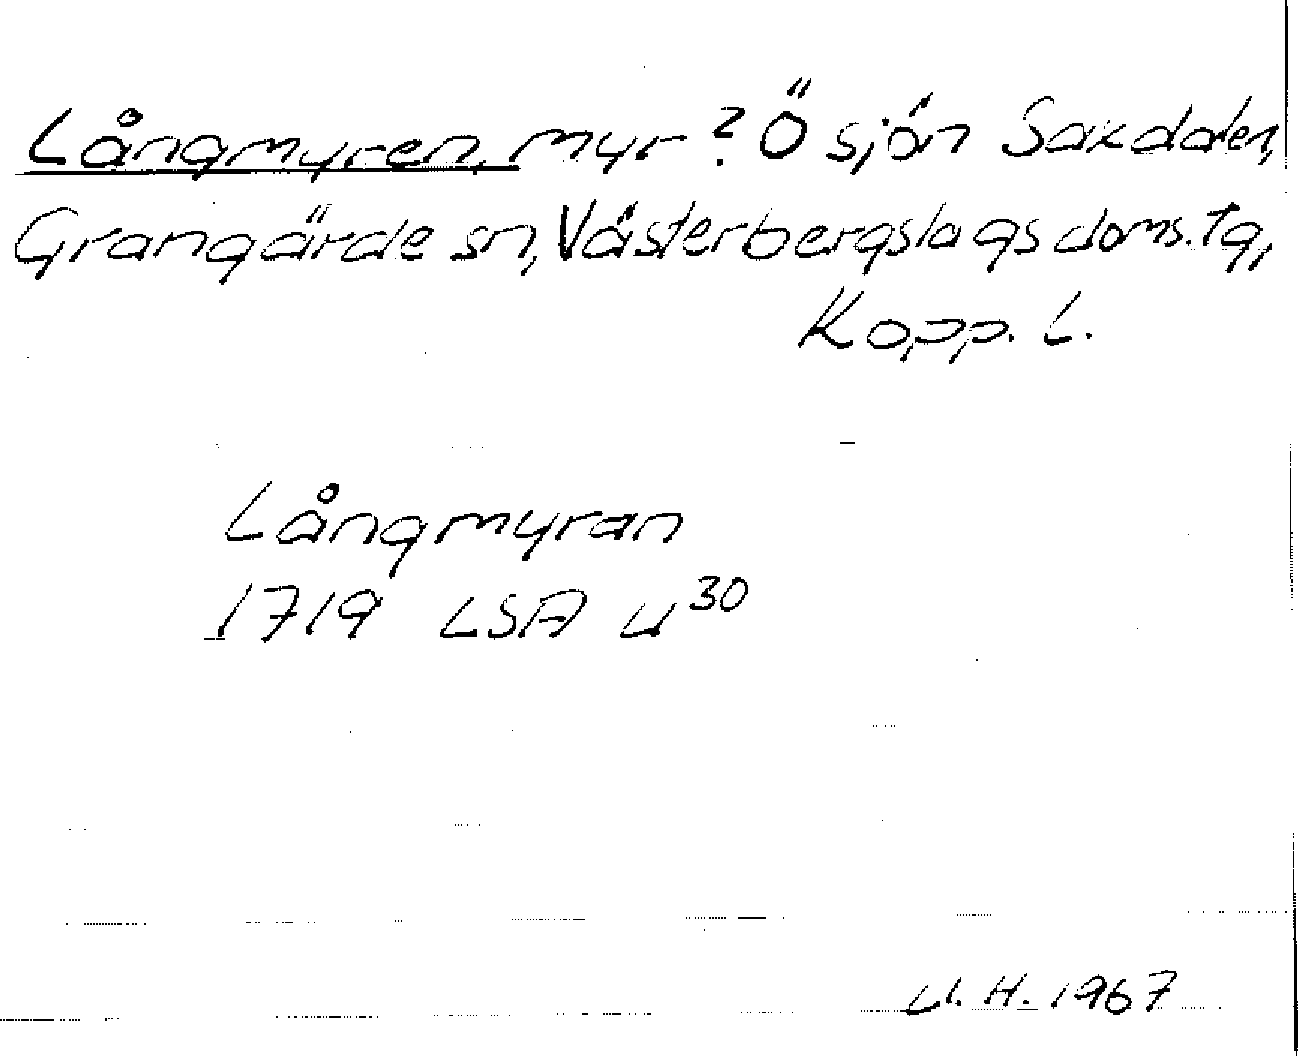 Långmyren, myr? Ö sjön Saxdalen,
Grangärde sn, Västerbergslags doms. tg,
Kopp. L.
Långmyran
1719 LSA U30
U. H. 1967